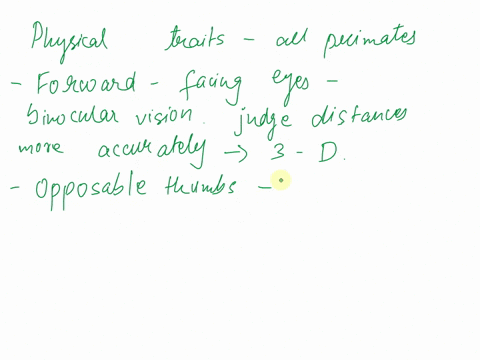 Physical traits - all primates
- Forward - facing eyes -
binocular vision. judge distances
more accurately → 3 - D.
- Opposable thumbs -